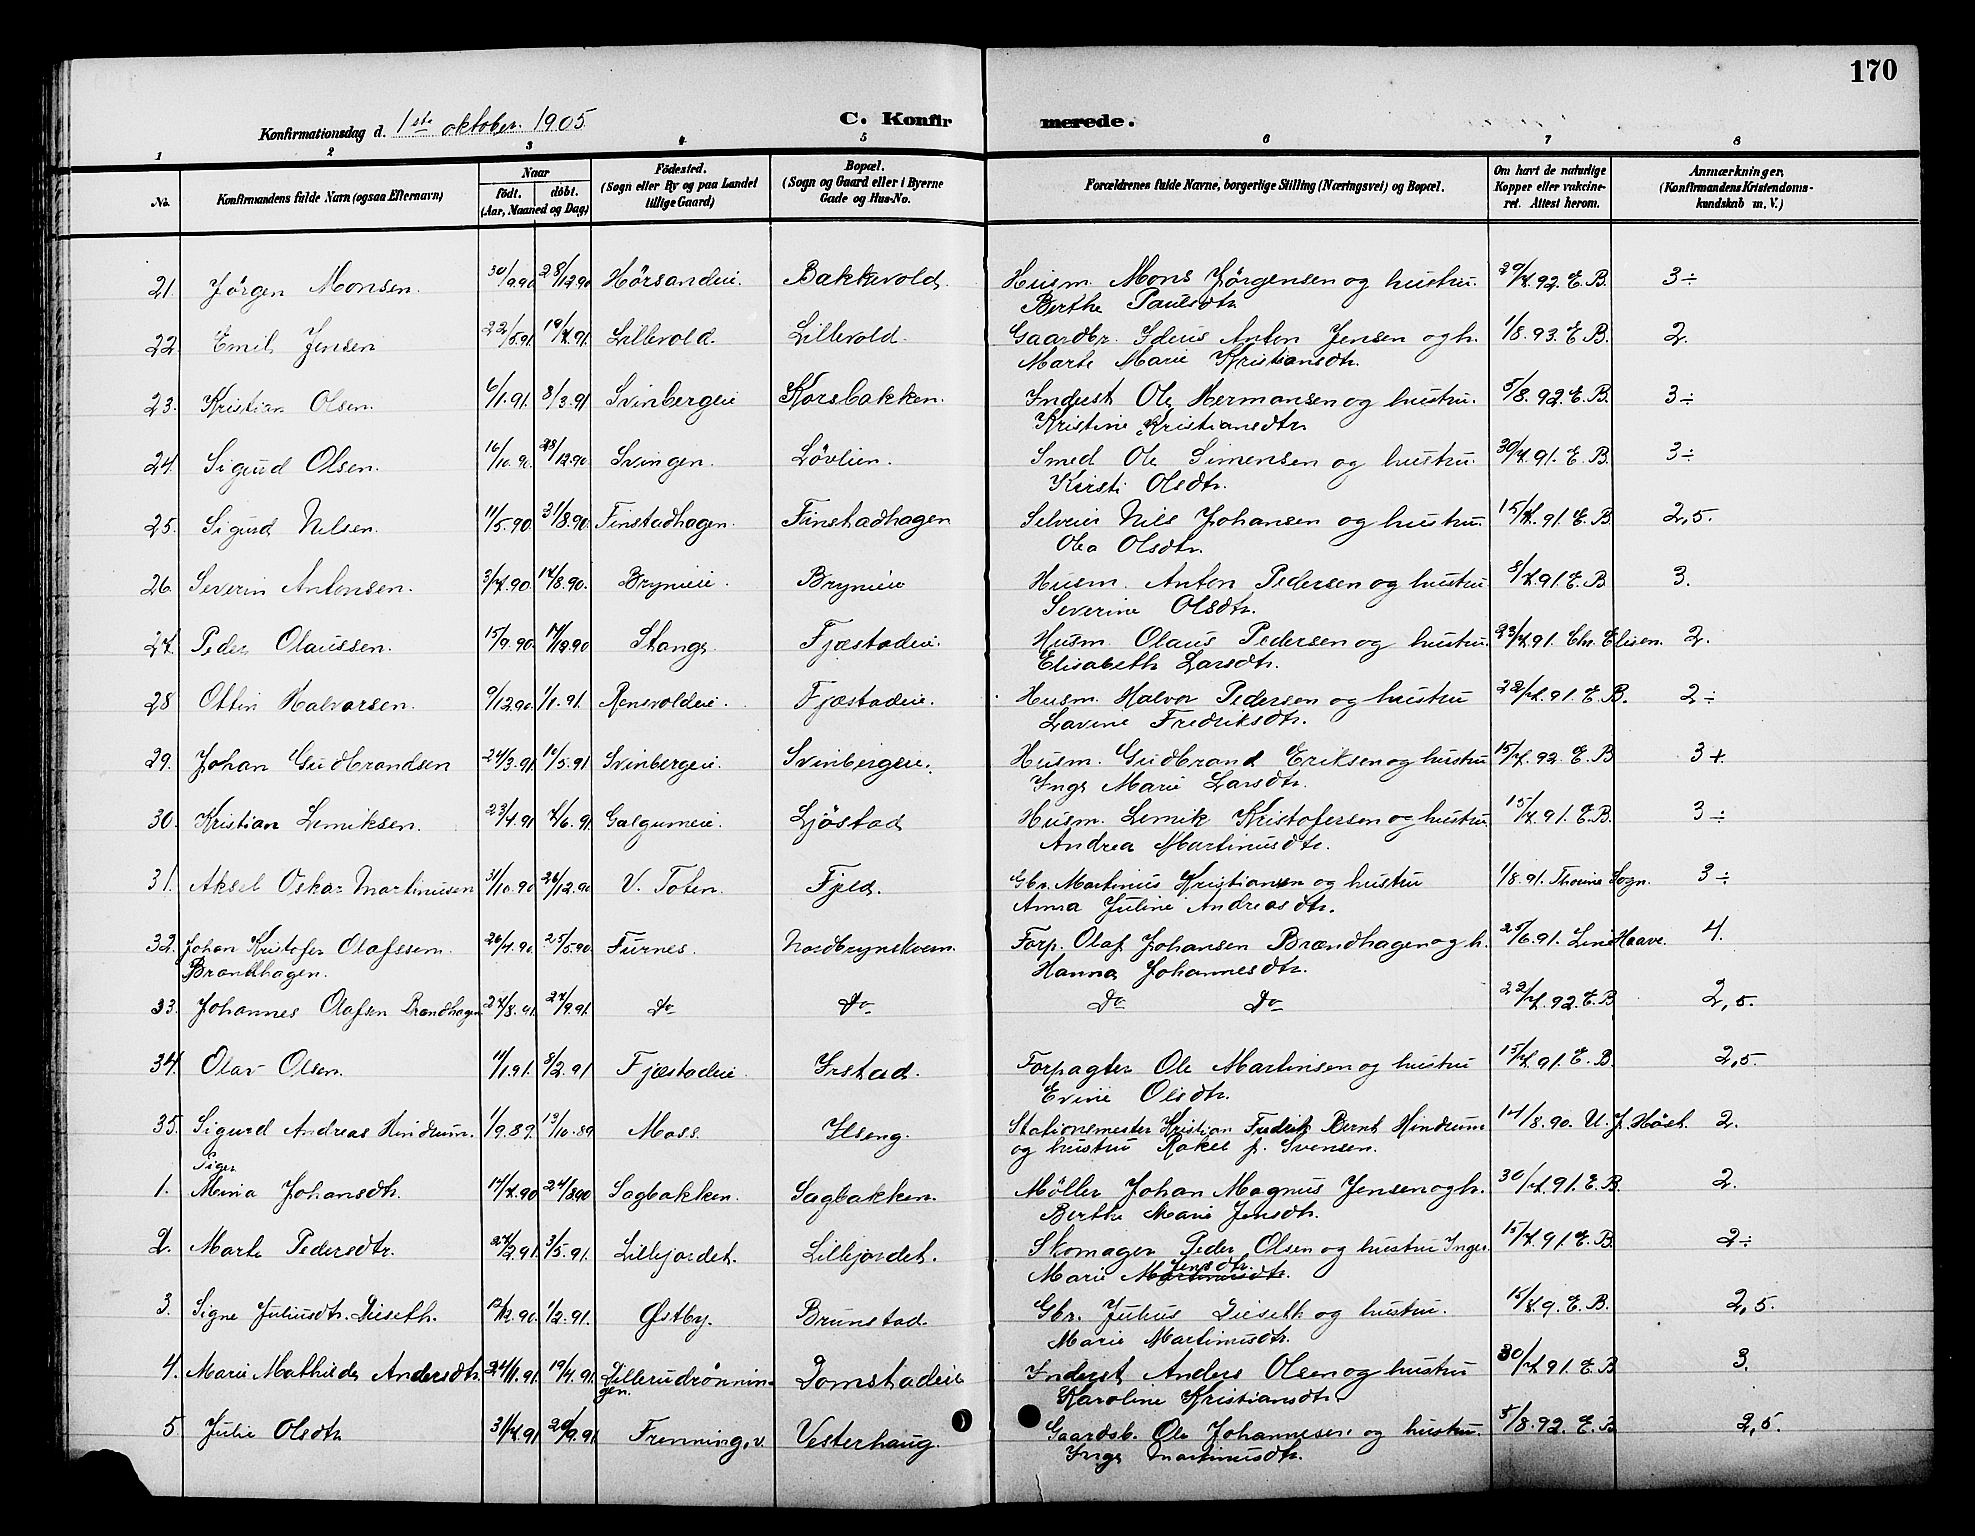 170
Konfirmationsdag d. 1ste oktober 1905 C. Konfirmerede.
1 2 3 4 5 6 7 8
No. Konfirmandens fulde Navn (ogsaa Efternavn) Naar født. døbt. (Aar, Maaned og Dag) Fødested. (Sogn eller By og paa Landet tillige Gaard) Bopæl. (Sogn og Gaard eller i Byerne Gade og Hus-No. Forældrenes fulde Navne, borgerlige Stilling (Næringsvei) og Bopæl. Om havt de naturlige Kopper eller vakcineret. Attest herom. Anmærkninger, (Konfirmandens Kristendomskundskab m. V.)
21. Jørgen Monsen. 30/9.90 28/12.90 Hørsandeie. Bakkevold. Husm. Mons Jørgensen og hustru. 20/7.92. E. B. 3÷
Berthe Paulsdtr.
22. Emil Jensen 22/5.91 19/7.91. Lillevold. Lillevold. Gaardbr. Anton Jensen og h. 1/8.93. E. B. 2.
Marte Marie Kristiansdtr.
23. Kristian Olsen. 6/1.91. 8/3.91 Svinbergeie Korsbakken. Inderst Ole Hermansen og hustru. 5/8.92. E. B. 3÷
Kristine Kristiansdtr.
24. Sigurd Olsen. 16/10.90. 28/12.90. Svingen. Løvlien. Smed Ole Simensen og hustru. 30/7.91. E. B. 3÷
Kirsti Olsdtr.
25. Sigurd Nilsen. 11/5.90. 31/8.90. Finstadhagen. Finstadhagen Selveier Nils Johansen og hustru. 15/7.91. E. B. 2,5.
Olea Olsdtr.
26. Severin Antonsen. 3/7.90. 14/8.90. Brynieie. Brynieie Husm. Anton Pedersen og hustru 8/7.91. E. B. 3.
Severine Olsdtr.
27. Peder Olaussen. 15/9.90. 14/12.90 Stange. Fjæstadeie. Husm. Olaus Pedersen og hustru. 23/7.91. Chr. Elisen. 2.
Elisabeth Larsdtr.
28 Ottin Halvorsen. 9/12.90. 1/1.91. Renevoldeie. Fjæstadeie. Husm. Halvor Pedersen og hustru 22/7.91. E. B. 2÷
Lavine Fredriksdtr.
29. Johan Gudbrandsen 24/3.91 10/5.91 Svinbergeie. Svinbergeie. Husm. Gudbrand Eriksen og hustru 15/7.92. E. B. 3+
Inge Marie Larsdtr.
30. Kristian Lemiksen. 23/4.91 7/6.91. Galgumeie. Ljøstad Husm. Lemik Kristofersen og hustru. 15/7.91. E. B. 3÷
Andrea Martinusdtr.
31. Aksel Oskar Martinusen 31/10.90 26/12.90 V. Toten. Fjeld. Gbr. Martinus Kristiansen og hustru 1/8.91. Thorine Sogn. 3÷
Anna Juline Andreasdtr.
32. Johan Kristofer Olafssen 26/4.90. 25/5.90 Furnes. Nordbrynskvern. Forp. Olaf Johansen Brændhagen og h. 25/6.91. Line Haave. 4.
Brændhagen. Hanna Johannesdtr.
33. Johannes Olafsen Brændhagen 27/8.91. 27/9.91. Do Do Do Do 22/7.92. E. B. 2,5.
34. Olav Olsen. 11/1.91. 8/2.91 Fjæstadeie. Irstad. Forpagter Ole Martinsen og hustru 15/7.91. E. B. 2,5
Evine Olsdtr.
35. Sigurd Andreas Hindrum. 1/9.89. 13/10.89 Moss. Ilseng. Stationsmester Kristian Fredrik Bernt Hindrum 14/8.90. U. J. Høst. 2.
og hustru Rakel f. Svensen.
Piger
1. Mina Johansdtr. 14/7.90 24/8.90 Sagbakken. Sagbakken. Møller Johan Magnus Jensen og h. 30/7.91. E. B. 2.
Berthe Marie Jensdtr.
2. Marte Pedersdtr. 27/2.91. 3/5.91. Lillejordet. Lillejordet. Skomager Peder Olsen og hustru Inger 15/7.91. E. B. 2÷
Marie Martinusdtr. Jensdtr.
3. Signe Juliusdtr. Dieseth. 12/12.90. 1/2.91. Østby. Brunstad. Gbr. Julius Dieseth og hustru. 15/8.9. E. B. 2,5.
Marie Martinusdtr.
4. Marie Mathilde Andersdtr. 24/1.91. 19/4.91. Lillerudrønningen. Domstadeie Inderst Anders Olsen og hustru 30/7.91. E. B 3.
Karoline Kristiansdtr.
5 Julie Olsdtr 31/7.91 20/9.91. Frenning, v. Vesterhaug. Gaardsb. Ole Johannesen og hustru. 5/8.92. E. B 2,5.
Inge Martinusdtr.